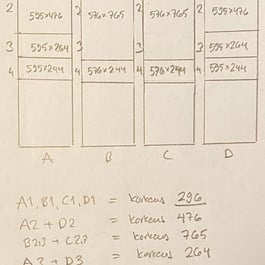 2 595x476 2 576x765 2 576x765 2 595x476
3 595x264 3 3 3 595x264
4 595x244 4 576x244 4 576x244 4 595x244
A B C D
A1, B1, C1, D1 = korkeus 296
A2 + D2 = korkeus 476
B2:3 + C2:3 = korkeus 765
A3 + D3 = korkeus 264